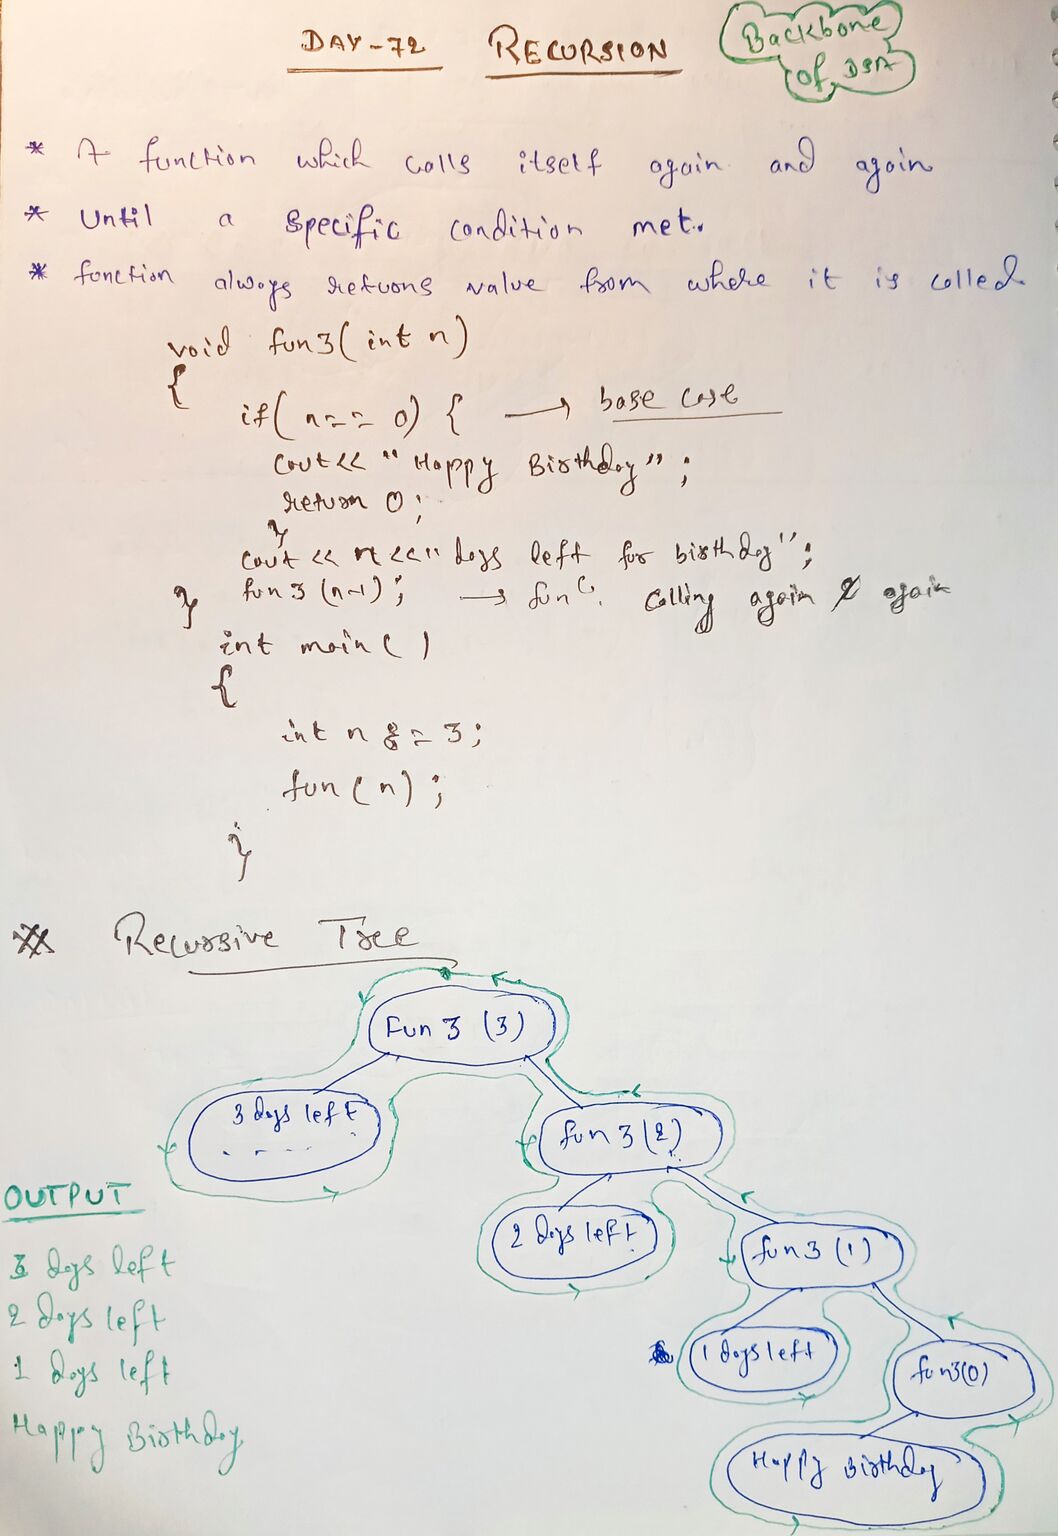 DAY-72 RECURSION
Backbone
of DSA
* A function which calls itself again and again
* Until a specific condition met.
* function always returns value from where it is called
void fun3(int n)
{
if(n == 0) { → base case
cout<< "Happy Birthday";
return 0;
}
cout << n <<" days left for birthday";
fun3(n-1); → func. calling again & again
}
int main()
{
int n = 3;
fun(n);
}
** Recursive Tree
Fun 3 (3)
3 days left
fun 3(2)
OUTPUT
2 days left
fun 3 (1)
3 days left
2 days left
1 days left
1 days left
fun3(0)
Happy Birthday
Happy Birthday